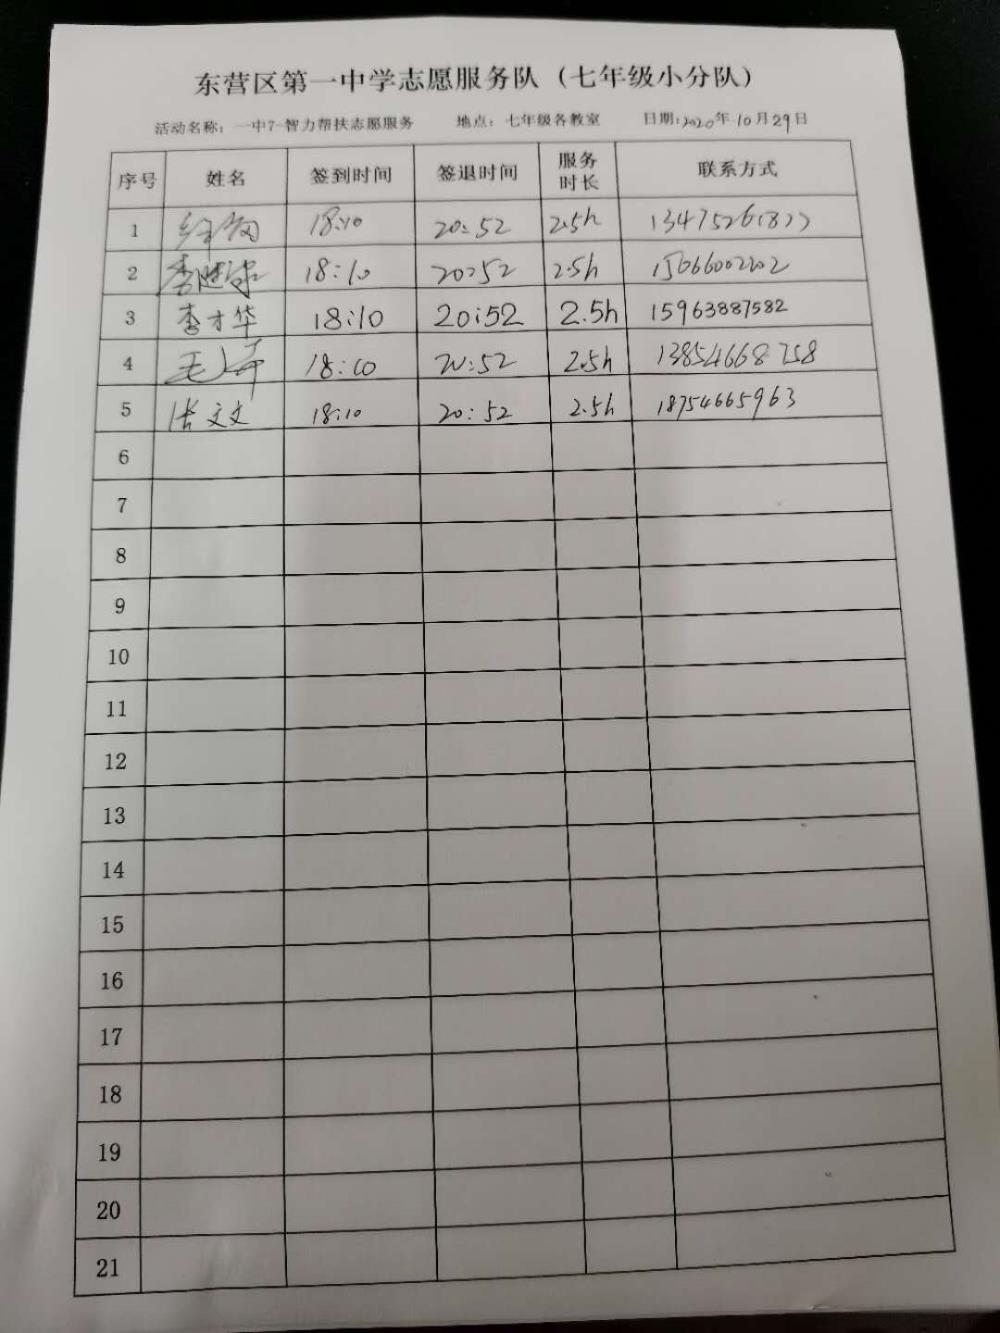 东营区第一中学志愿服务队（七年级小分队）
活动名称：一中7-智力帮扶志愿服务 地点：七年级各教室 日期:2020年10月29日
序号 姓名 签到时间 签退时间 服务时长 联系方式
1 18:10 20:52 2.5h
2 18:10 20:52 2.5h 15066002202
3 李才华 18:10 20:52 2.5h 15963887582
4 18:10 20:52 2.5h 13854668758
5 张文文 18:10 20:52 2.5h 18754665963
6
7
8
9
10
11
12
13
14
15
16
17
18
19
20
21